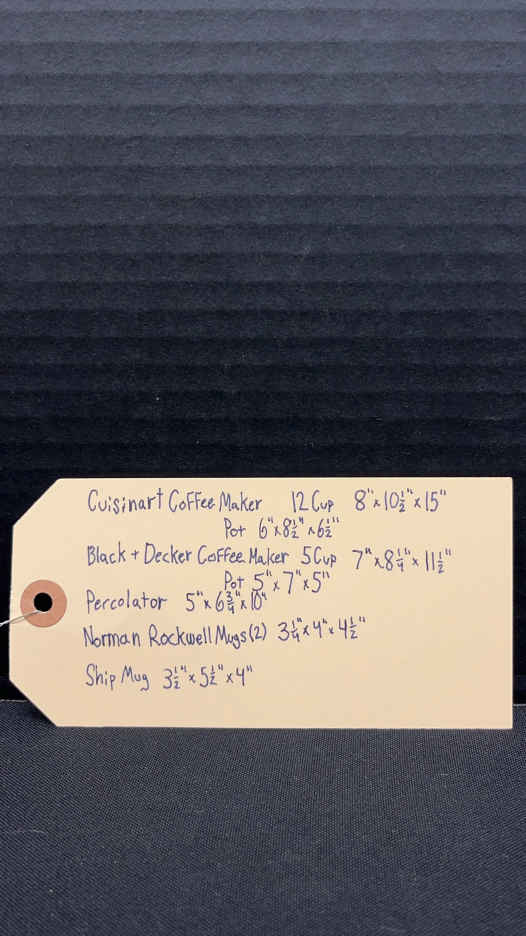 Cuisinart Coffee Maker 12 Cup 8"x10½"x15"
Pot 6"x8½"x6½"
Black + Decker Coffee Maker 5 Cup 7"x8¼"x11½"
Pot 5"x7"x5"
Percolator 5"x6¾"x10"
Norman Rockwell Mugs (2) 3¼"x4"x4½"
Ship Mug 3½"x5½"x4"